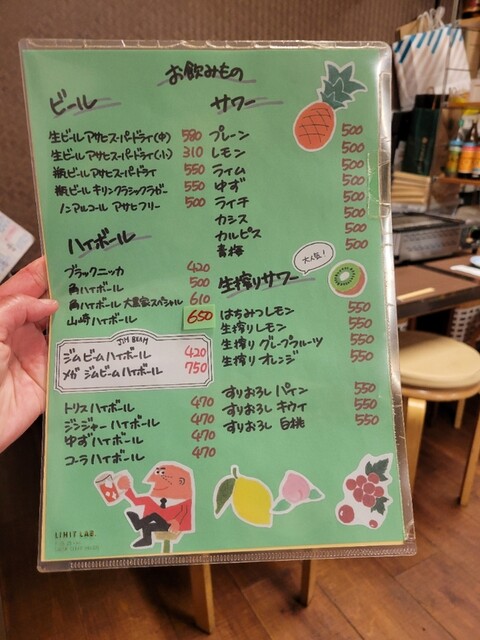 お飲みもの
ビール
生ビール アサヒスーパードライ(中) 580
生ビール アサヒスーパードライ(小) 310
瓶ビール アサヒスーパードライ 550
瓶ビール キリンクラシックラガー 550
ノンアルコール アサヒフリー 500
ハイボール
ブラックニッカ 420
角ハイボール 500
角ハイボール 大農家スペシャル 610
山崎ハイボール 650
JIM BEAM
ジムビームハイボール 420
メガ ジムビームハイボール 750
トリスハイボール 470
ジンジャーハイボール 470
ゆずハイボール 470
コーラハイボール 470
サワー
プレーン 500
レモン 500
ライム 500
ゆず 500
ライチ 500
カシス 500
カルピス 500
青梅 500
生搾りサワー
大人気!
はちみつレモン 550
生搾りレモン 550
生搾り グレープフルーツ 550
生搾り オレンジ 550
すりおろし パイン 550
すりおろし キウイ 550
すりおろし 白桃 550
LIMIT LAB.